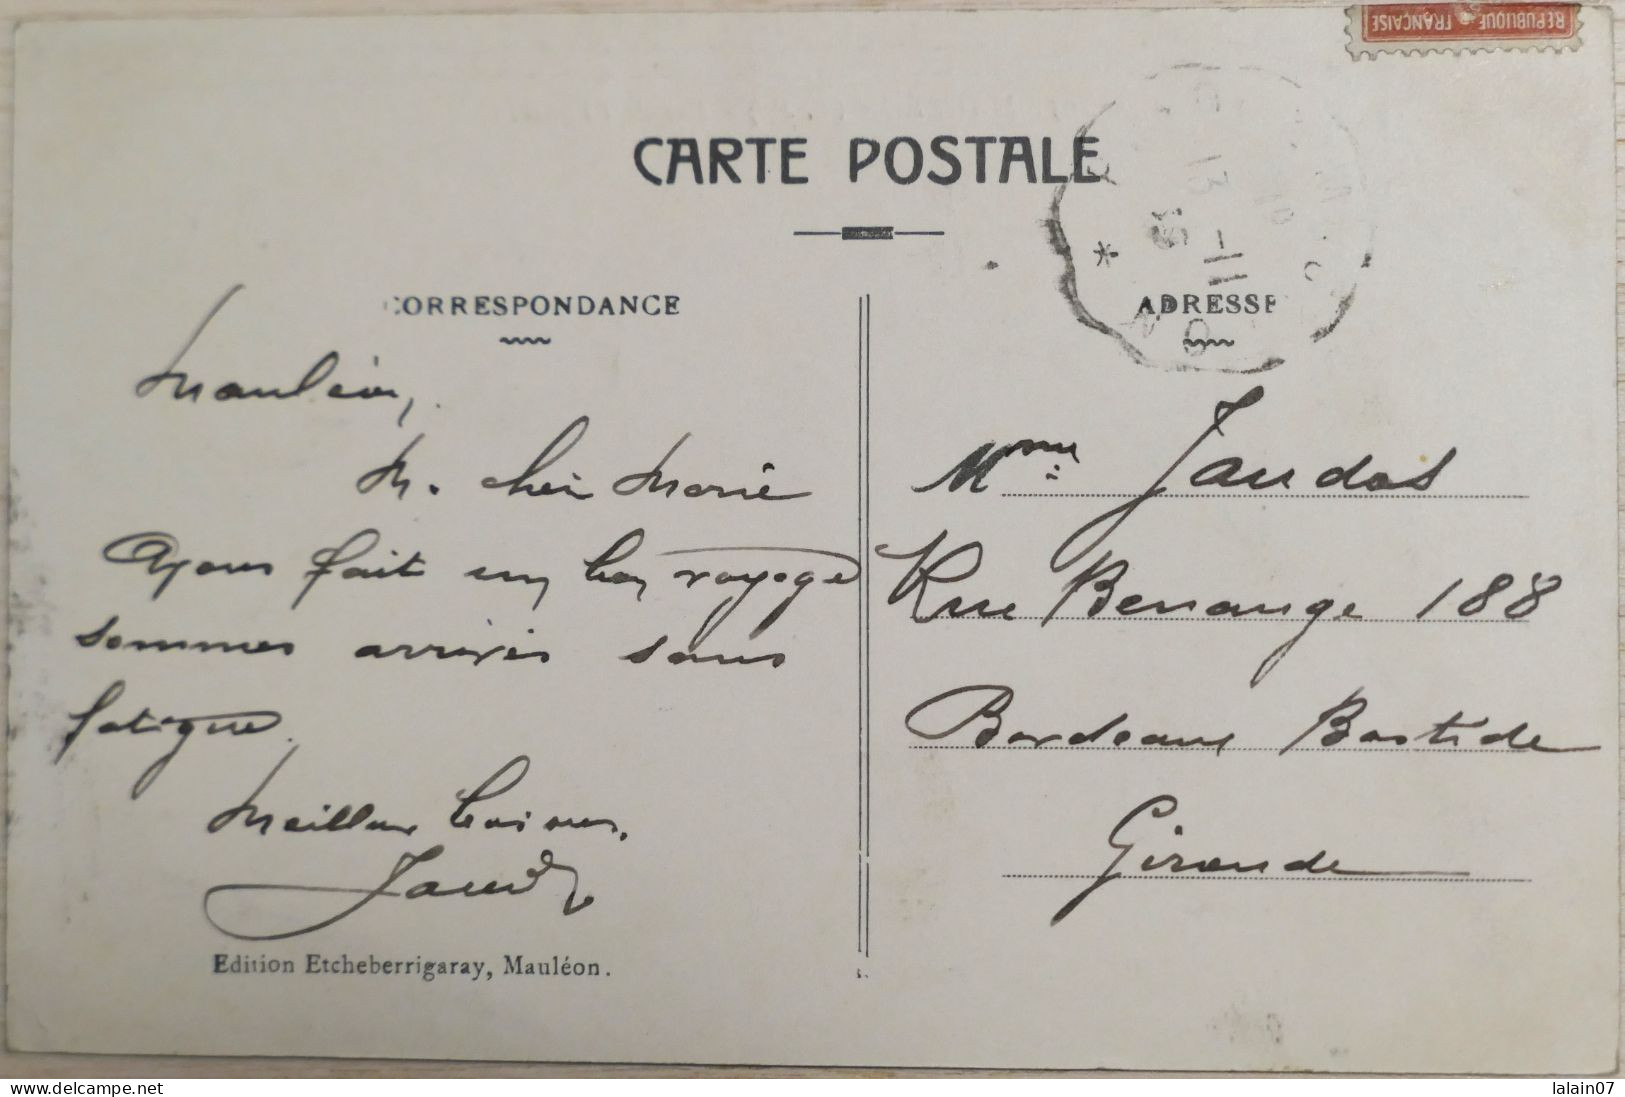 RÉPUBLIQUE FRANÇAISE
CARTE POSTALE
13 -11
CORRESPONDANCE
ADRESSE
Mauléon,
M. chère Marie
Ayons fait un bon voyage
sommes arrivés sans
fatigue.
Meilleurs baisers.
Mme Jaudos
Rue Benauge 188
Bordeaux Bastide
Gironde
Edition Etcheberrigaray, Mauléon.
www.delcampe.net
lalain07